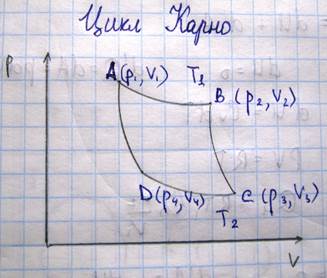 Цикл Карно
P
A(p₁, V₁) T₁
B (p₂, V₂)
D(p₄, V₄)
C (p₃, V₃)
T₂
V